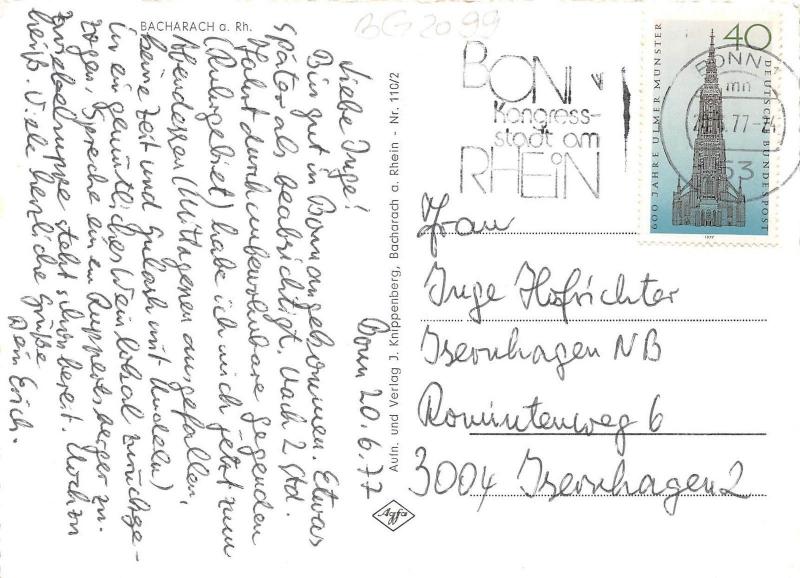 BACHARACH a. Rh.
BG 2099
Bonn 20.6.77
Liebe Inge!
Bin gut in Bonn angekommen. Etwas
später als beabsichtigt. Nach 2 Std.
Fahrt durch unbewohnbare Gegenden
(Ruhrgebiet) habe ich mich jetzt zum
Abendessen (Mittagessen ausgefallen,
keine Zeit und Gulasch mit Nudeln)
in ein gemütliches Weinlokal zurückge-
zogen. Spreche einen Ruppertsberger zu.
Zwiebelsuppe steht schon bereit. Noch zu
heiß. Viele herzliche Grüße
Dein Erich.
Aufn. und Verlag J. Knippenberg, Bacharach a. Rhein - Nr. 110/2
Agfa
BONN
Kongress-
stadt am
RHEIN
40
600 JAHRE ULMER MÜNSTER
DEUTSCHE BUNDESPOST
1977
BONN
mn
77-24
53
Frau
Inge Hofrichter
Isernhagen NB
Romintenweg 6
3004 Isernhagen 2